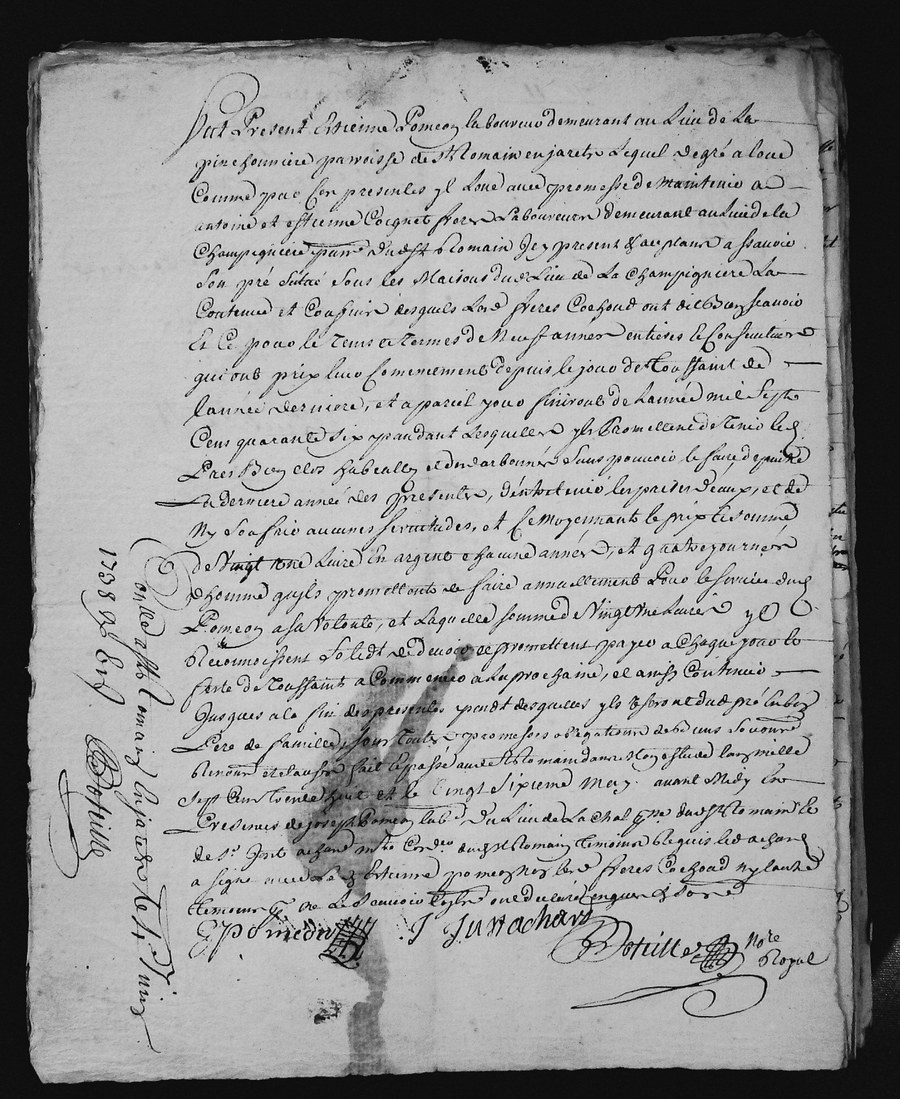 fut Present Estienne Pomeon laboureur demeurant au Lieu de La
pinchonniere parroisse de St Romain en jarets Lequel de gré a loué
Comme par Ces presentes yl Loue avec promesse de Maintenir a
antoine et estienne Coignet freres Laboureurs demeurant au Lieu de la
Champigniere parr. dud St Romain Jcy present & acceptans a sçavoir
Son pré Situé Sous les Maisons dud Lieu de La Champigniere La
Contenue et Confins desquels Lesd freres ont dit Bien sçavoir
Et Ce pour le tems et termes de Neuf années entieres & Consecutives
qui ont pris leur Commencement depuis le jour de Toussaint de
Lannée derniere, et a pareil jour finiront de Lannée mil Sept
Cens quarante Six pendant Lesquelles yls Promettent de tenir led
Prez Bien Clos Sans pouvoir le faire depaitre
La Derniere année des presentes, les prises deaux, et de
Ny Souffrir aucunes Servitudes, et Ce Moyennant le prix et Somme
De Vingt une Livre En argent Chacune année, et quatre journées
dhomme quyls promettent de faire annuellement Pour le Service dud
Pomeon a sa Volonté, et Laquelle Somme de Vingt une Livre yls
Reconnoissent devoir et promettent payer a Chaque jour et
feste de Toussaint a Commencer a La prochaine, et ainsy Continuer
Jusques a la fin des presentes pendt desquelles yls useront dud pré en bon
Pere de famille, Sous toutes promesses obligations de biens
Renon. et clauses fait et passé aud St Romain dans Notre estude Lan mille
Sept Cens trente huit et le Vingt Sixieme May avant Midy En
Presences de joseph Pomeon lab. du Lieu de La Chal parr. dud St Romain et
de Sr Just achard Me Cord. dud St Romain temoins Lequel led achard
a Signé avec Led Estienne pomeon Non Lesd freres ny lautre
temoins pr ne Le Sçavoir de ce enquis & Sommé
E pomeon J Just achard
Bothillier Nore
Royal
Conllé a St Romain en jarets Le 4 Juin
1738 Reçu
Bothillier